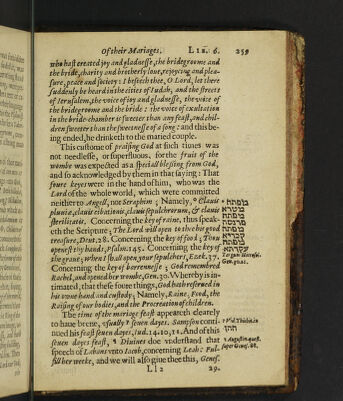 Of their Mariages.   LIB. 6.   239
who hast created joy and gladnesse, the bridegroome and
the bride, charity and brotherly love, rejoycing and plea-
sure, peace and society: I beseech thee, O Lord, let there
suddenly be heard in the cities of Judah, and the streets
of Ierusalem, the voice of joy and gladnesse, the voice of
the bridegroome and the bride: the voice of exultation
in the bride-chamber is sweeter than any feast, and chil-
dren sweeter than the sweetnesse of a song: and this be-
ing ended, he drinketh to the maried couple.
This custome of praising God at such times was
not needlesse, or superfluous, for the fruit of the
wombe was expected as a speciall blessing from God,
and so acknowledged by them in that saying: That
foure keyes were in the hand of him, who was the
Lord of the whole world, which were committed
neither to Angell, nor Seraphim; Namely, Clavis
pluviæ, clavis cibationis, clavis sepulchrorum, & clavis
sterilitatis. Concerning the key of raine, thus speak-
eth the Scripture; The Lord will open to thee his good
treasure, Deut. 28. Concerning the key of food; Thou
openest thy hands, Psalm. 145. Concerning the key of
the grave; when I shall open your sepulchers, Ezek. 37.
Concerning the key of barrennesse; God remembred
Rachel, and opened her wombe, Gen. 30. Whereby is in-
timated, that these foure things, God hath reserved in
his owne hand and custody; Namely, Raine, Food, the
Raising of our bodies, and the Procreation of children.
The time of the mariage feast appeareth clearely
to haue beene, vsually seuen dayes. Sampson conti-
nued his feast seuen dayes, Iud. 14. 10, 11. And of this
seuen dayes feast, Diuines doe vnderstand that
speech of Labans vnto Iacob, concerning Leah: Ful-
fill her weeke, and we will also giue thee this, Genes.
Ll 2   29.
מפתח
Gen. 30. 22.